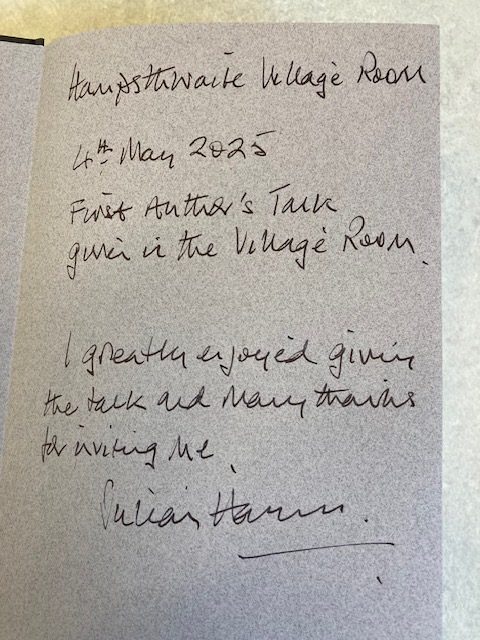 Hampsthwaite Village Room
4th May 2025
First Author's Talk
given in the Village Room.
I greatly enjoyed giving
the talk and many thanks
for inviting me.